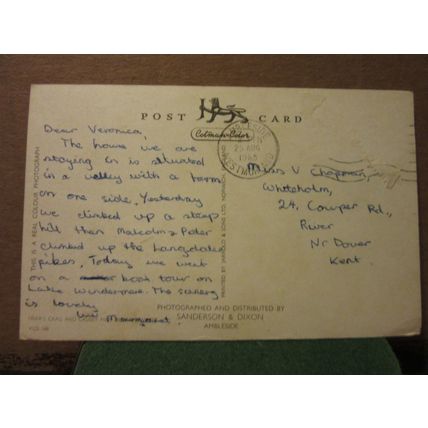 POST CARD
Colman-Color
AMBLESIDE
25 AUG
1965
WESTMORLAND
Dear Veronica,
The house we are
staying in is situated
in a valley with a farm
on one side, Yesterday
we climbed up a steep
hill then Malcolm & Peter
climbed up the Langdale
pikes, Today we went
on a boat tour on
Lake Windermere. The scenery
is lovely
Miss V Chapman,
Whiteholm,
24, Cowper Rd.,
River
Nr Dover
Kent.
THIS IS A REAL COLOUR PHOTOGRAPH
PRINTED BY JARROLD & SONS LTD. NORWICH
PHOTOGRAPHED AND DISTRIBUTED BY
SANDERSON & DIXON
AMBLESIDE
FRIAR'S CRAG AND